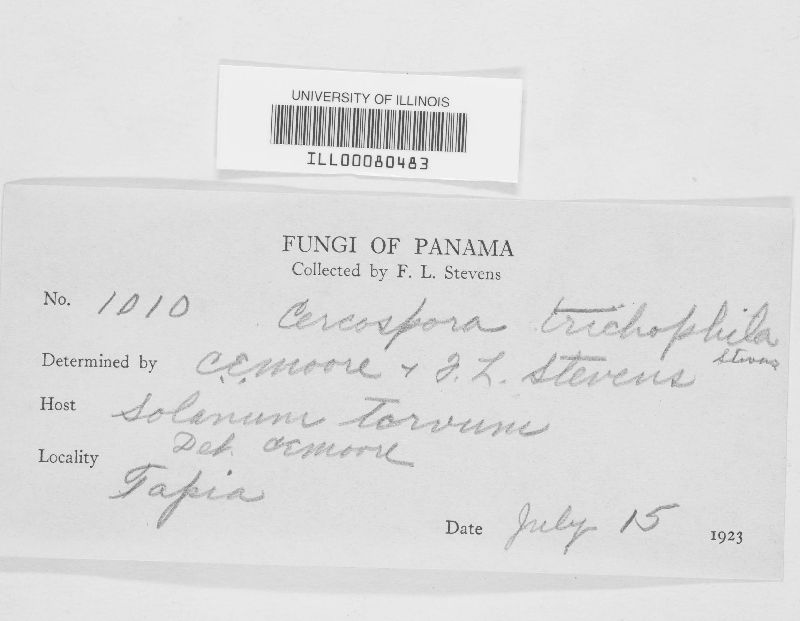 UNIVERSITY OF ILLINOIS
ILL00080483
FUNGI OF PANAMA
Collected by F. L. Stevens
No. 1010 Cercospora trichophila
Stevens
Determined by C.E. Moore + F. L. Stevens
Host Solanum Torvum
Det. CEMoore
Locality Tapia
Date July 15 1923